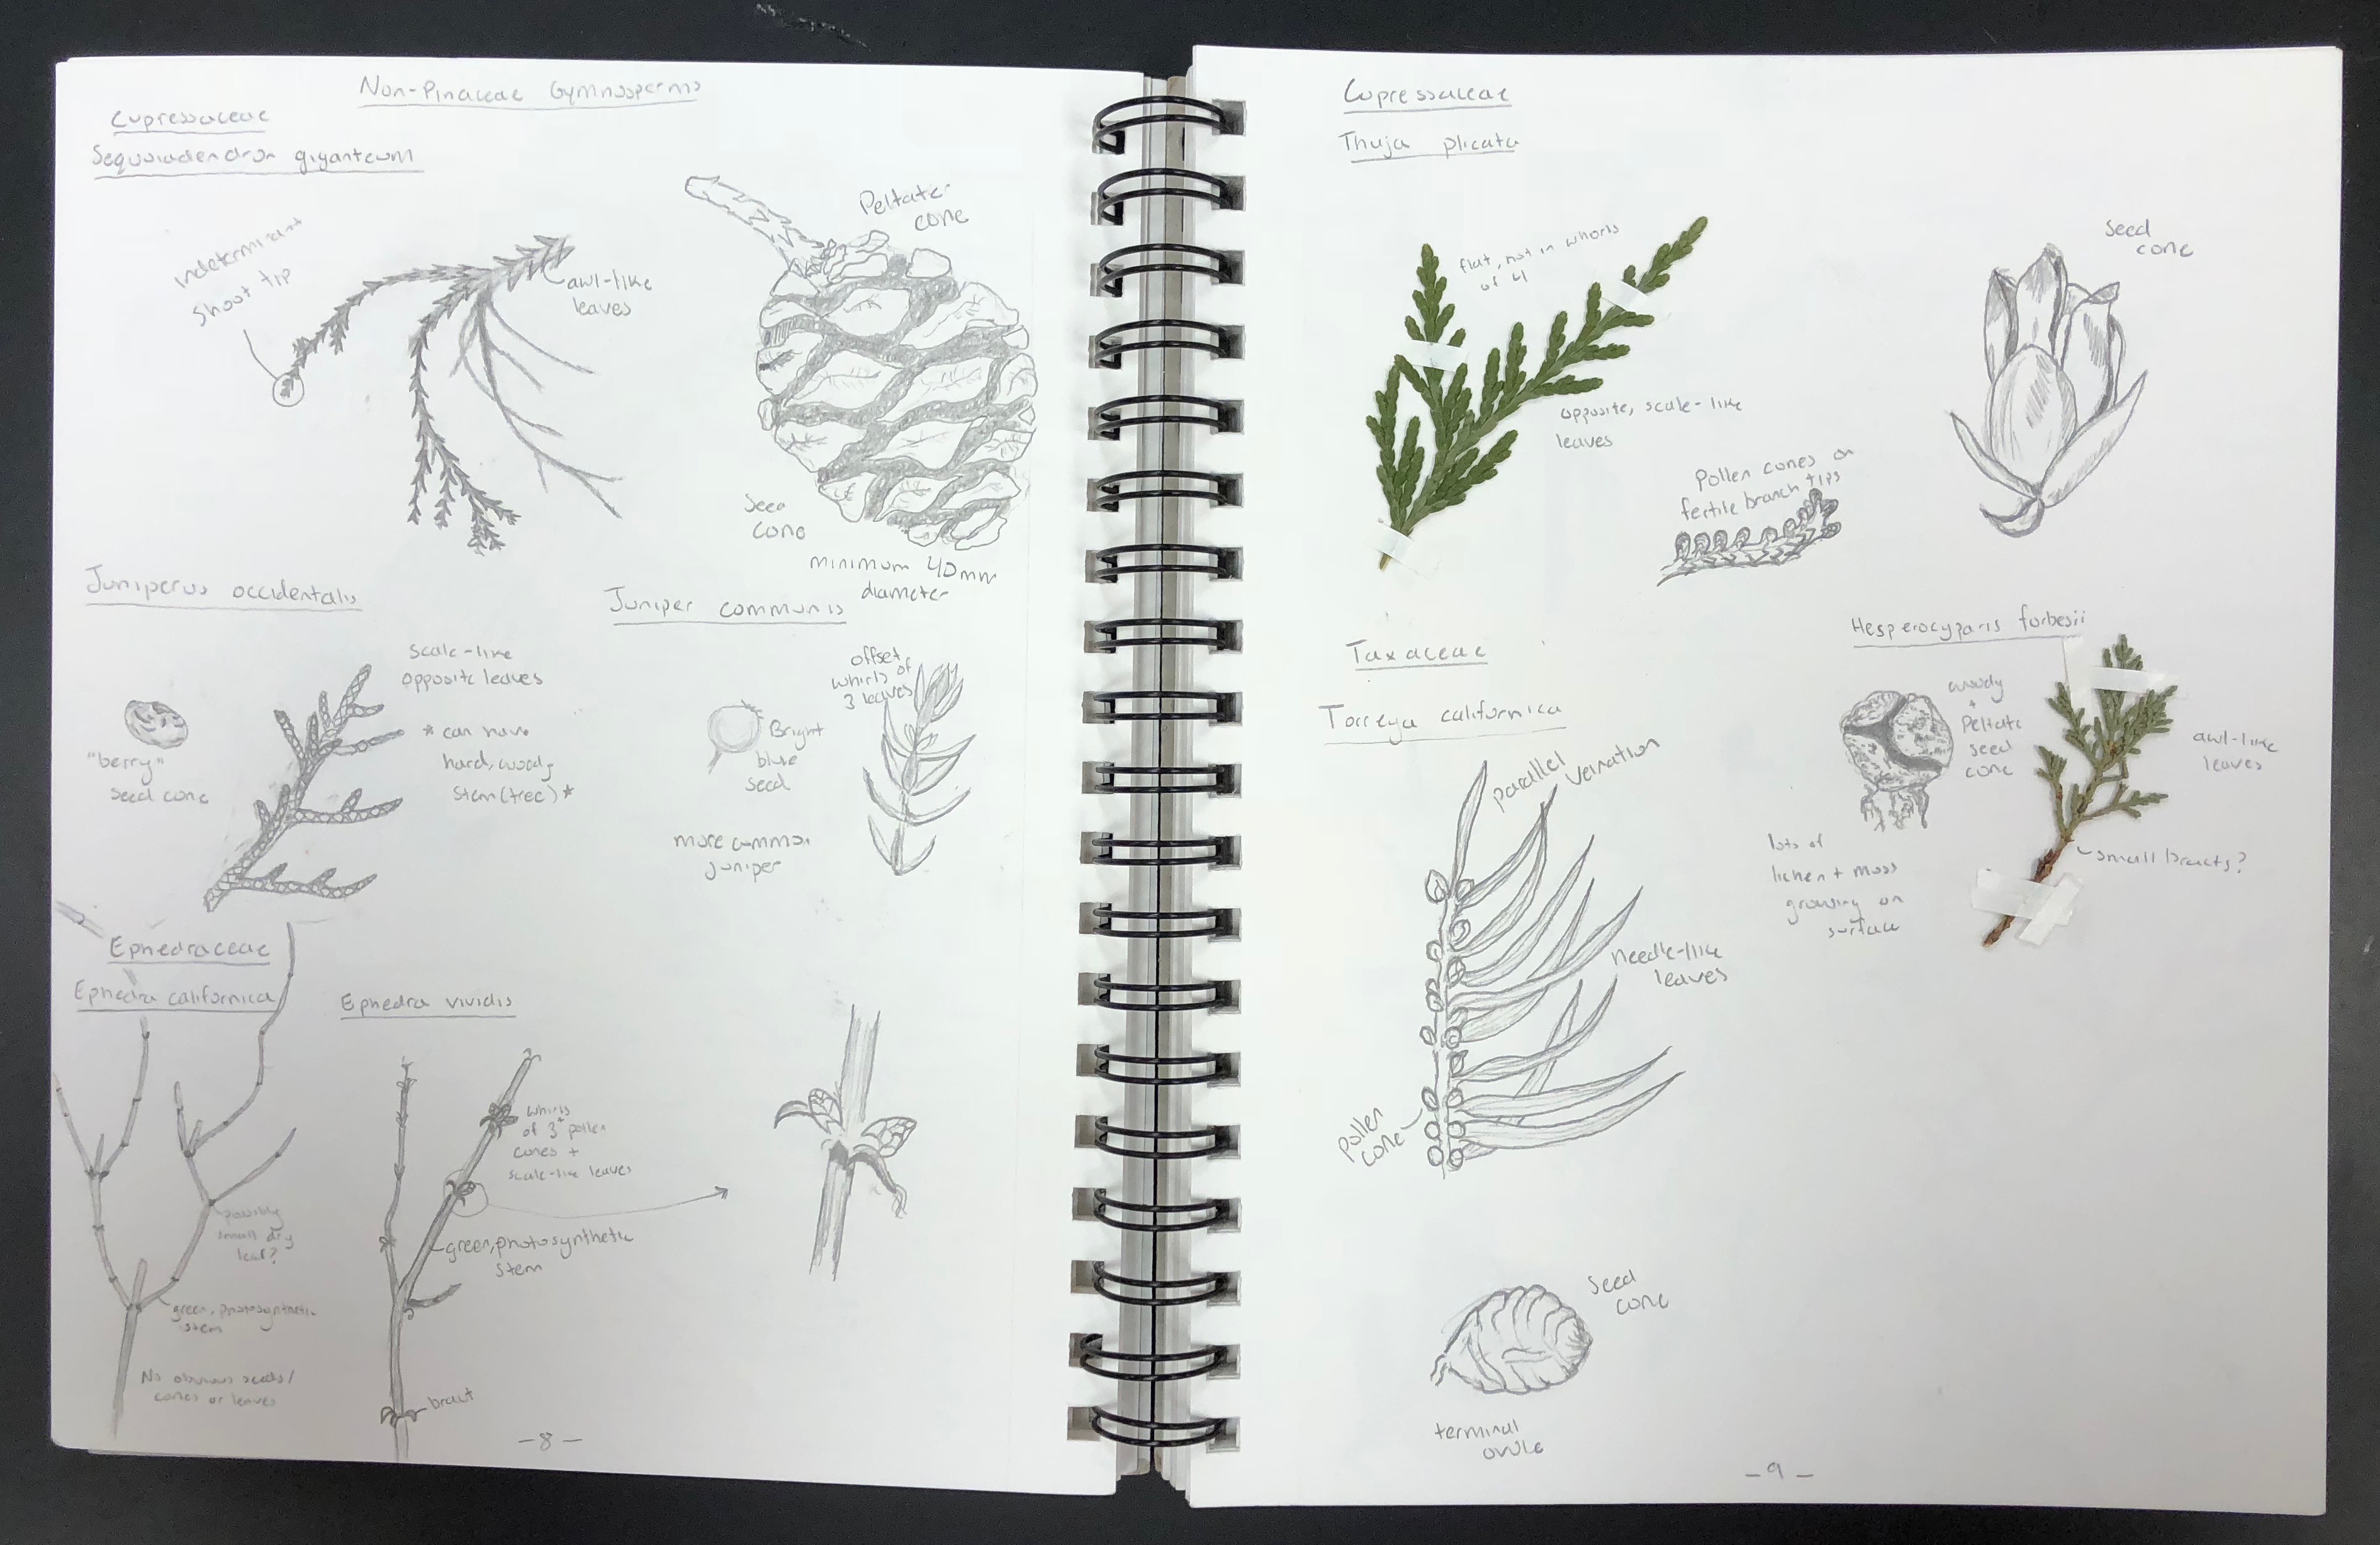 Non-Pinaceae Gymnosperms
Cupressaceae
Sequoiadendron giganteum
Indeterminant
shoot tip
awl-like
leaves
Peltate
cone
Seed
cone
minimum 40mm
diameter
Juniperus occidentalis
"berry"
seed cone
scale-like
opposite leaves
* can have
hard, woody
stem (tree) *
Juniper communis
offset
whirls of
3 leaves
Bright
blue
seed
more common
juniper
Ephedraceae
Ephedra californica
possibly
small dry
leaf?
green, photosynthetic
stem
No obvious seeds/
cones or leaves
Ephedra vividis
whirls
of 3 pollen
cones +
scale-like leaves
green, photosynthetic
stem
bract
-8-
Cupressaceae
Thuja plicata
flat, not in whorls
of 4
opposite, scale-like
leaves
Pollen cones on
fertile branch tips
Seed
cone
Taxaceae
Torreya californica
parallel
venation
needle-like
leaves
pollen
cone
Seed
cone
terminal
ovule
Hesperocyparis forbesii
woody
+
Peltate
seed
cone
awl-like
leaves
lots of
lichen + moss
growing on
surface
small bracts?
-9-